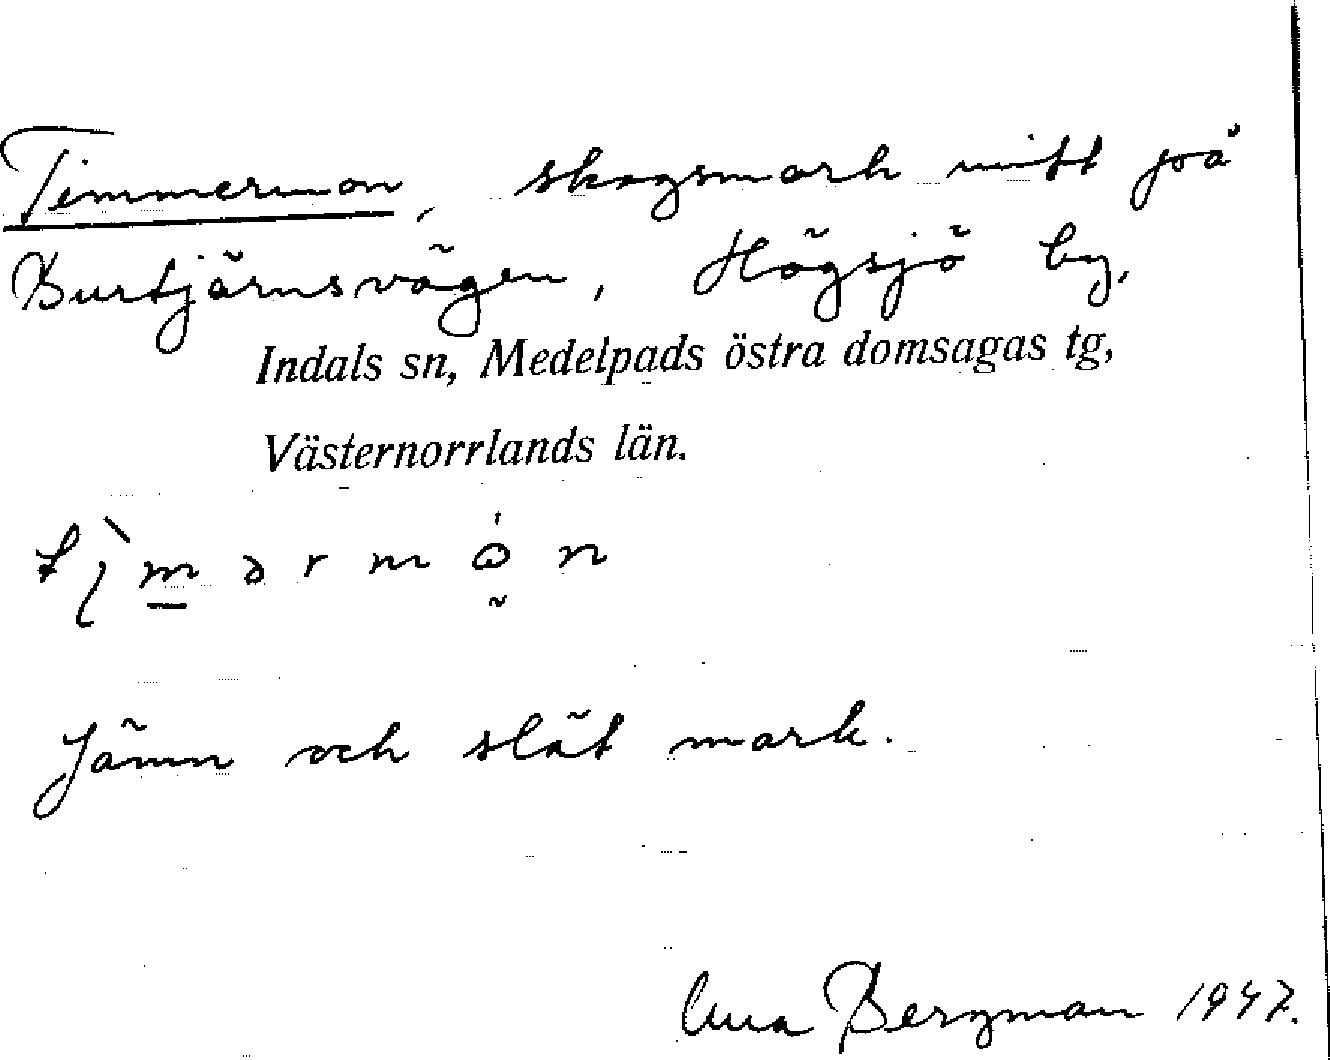 Timmermon, skogsmark mitt på
Burtjärnsvägen, Högsjö by,
Indals sn, Medelpads östra domsagas tg,
Västernorrlands län.
Jämn och slät mark.
Bergman 1947.